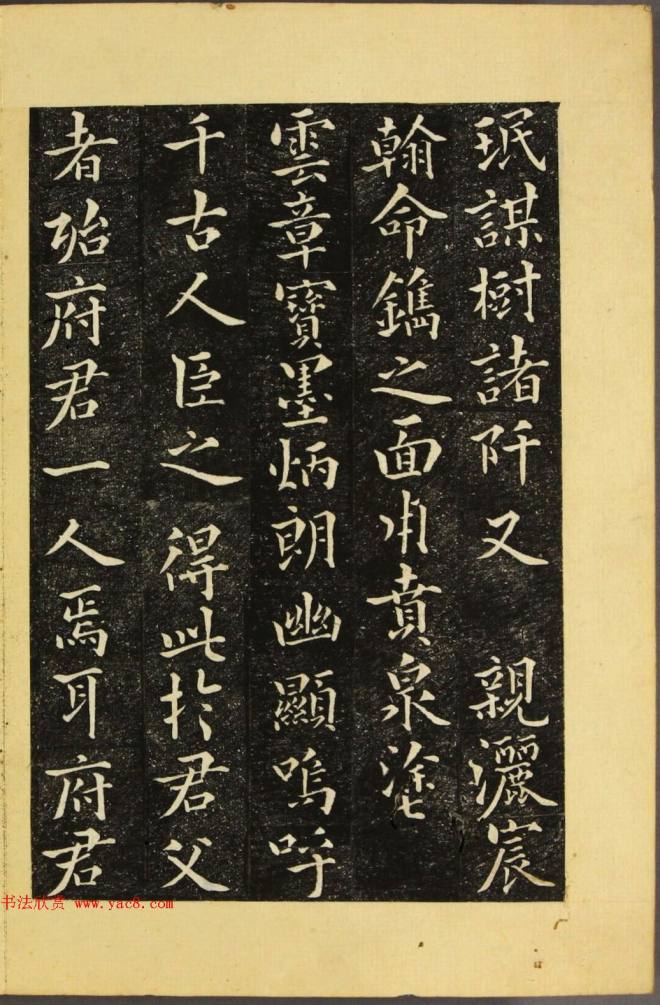 珉謀樹諸阡又 親灑宸
翰命鐫之面用賁泉塗
雲章寶墨炳朗幽顯嗚呼
千古人臣之 得此於君父
者殆府君一人焉耳府君
书法欣赏 www.yac8.com